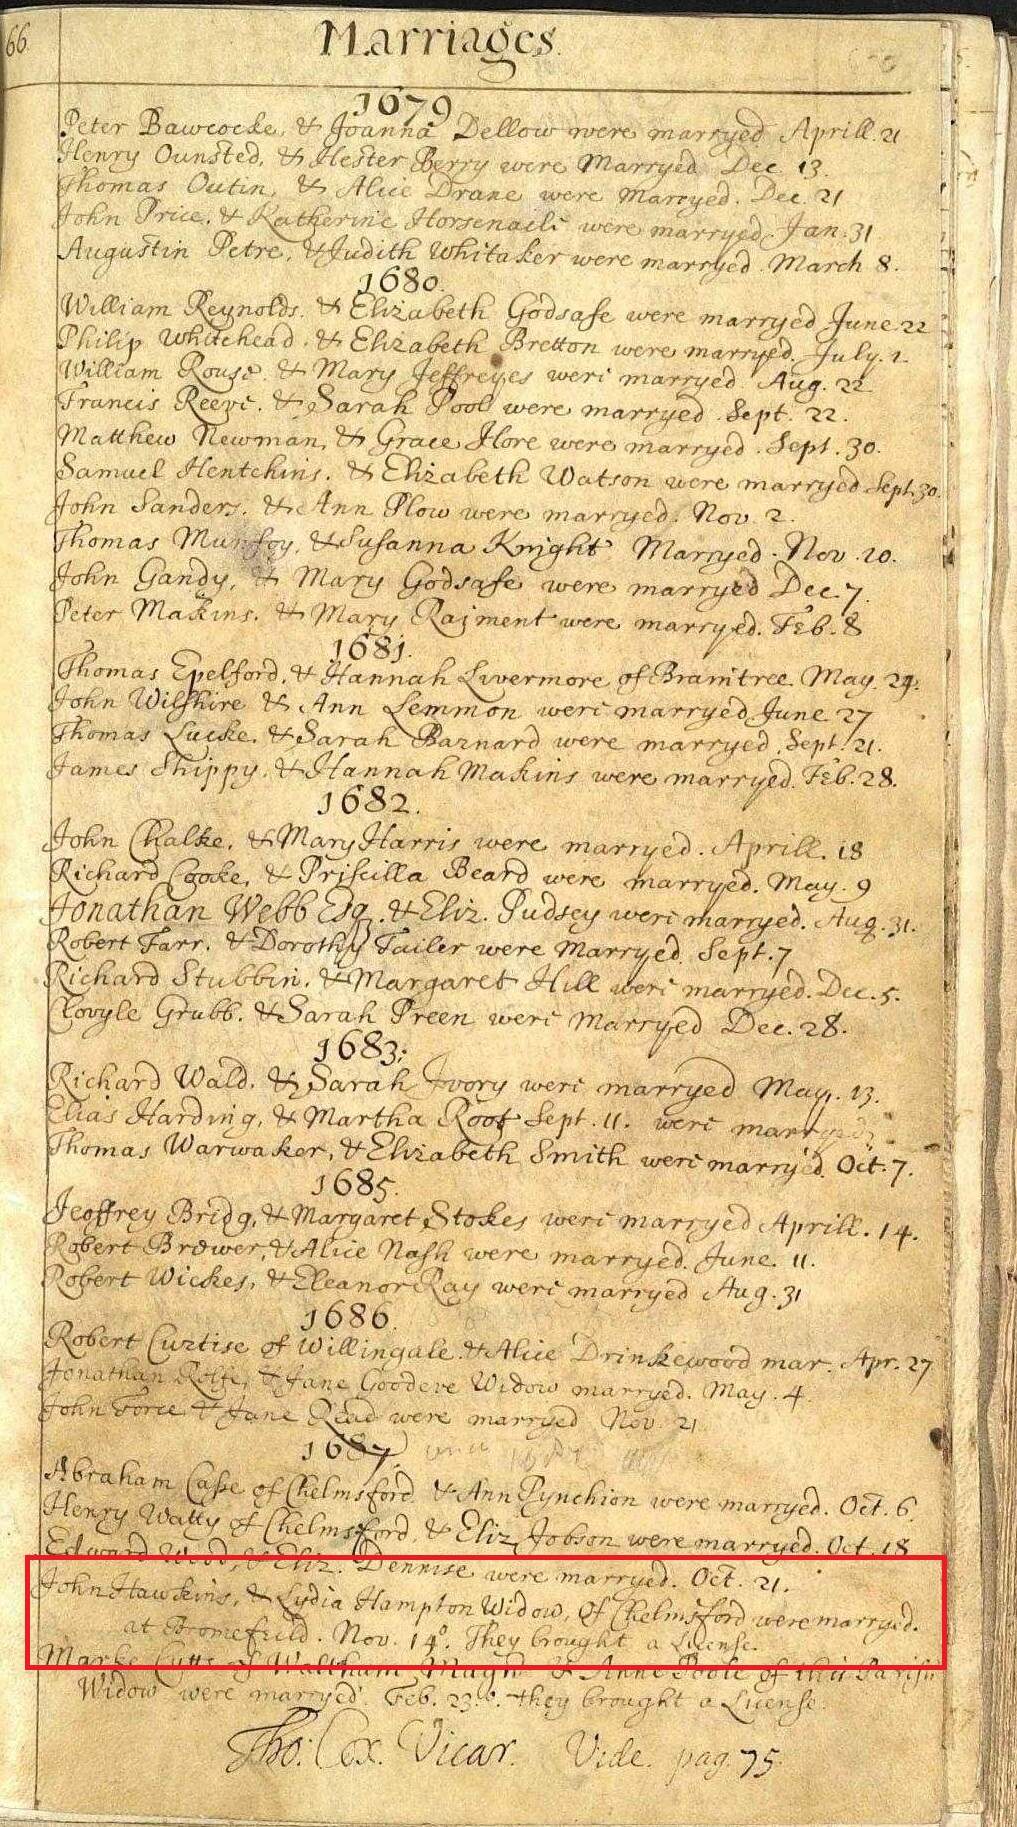 66
Marriages
1679
Peter Bawcocke, & Joanna Dellow were marryed Aprill. 21
Henry Ounsted, & Hester Berry were Marryed Dec. 13.
Thomas Outin, & Alice Drane were Marryed. Dec. 21
John Price, & Katherine Horsenaile were marryed. Jan. 31
Augustin Petre, & Judith Whitaker were marryed. March 8.
1680.
William Reynolds. & Elizabeth Godsafe were marryed June 22
Philip Whitehead. & Elizabeth Bretton were marryed. July. 1.
William Rouse. & Mary Jeffreyes were marryed. Aug. 22
Francis Reeve. & Sarah Pool were marryed. Sept. 22.
Matthew Newman, & Grace Hore were marryed. Sept. 30.
Samuel Hentchins. & Elizabeth Watson were marryed Sept. 30.
John Sanders. & Ann Plow were marryed. Nov. 2.
Thomas & Susanna Knight Marryed. Nov. 10.
John Gandy, & Mary Godsafe were marryed Dec. 7
Peter Makins. & Mary Raiment were marryed. Feb. 8
1681.
Thomas Epelford, & Hannah Livermore of Braintree. May. 24.
John Wilshire & Ann Lemmon were marryed June 27
Thomas Lucke. & Sarah Barnard were marryed. Sept. 21.
James Shippy. & Hannah Makins were marryed. Feb. 28.
1682.
John Chalke, & Mary Harris were marryed. Aprill. 18
Richard Cooke, & Priscilla Beard were marryed. May. 9
Jonathan Webb Esq. & Eliz. Pudsey were marryed. Aug. 31.
Robert Farr. & Dorothy Tailer were Marryed Sept. 7
Richard Stubbin. & Margaret Hill were marryed. Dec. 5.
Clovyle Grubb. & Sarah Preen were Marryed Dec. 28.
1683;
Richard Wald. & Sarah Ivory were marryed May. 13.
Elias Harding, & Martha Root Sept. 11. were marryed.
Thomas Warwaker, & Elizabeth Smith were marryed. Oct. 7.
1685.
Jeoffrey Bridg, & Margaret Stokes were marryed Aprill. 14.
Robert Brewer, & Alice Nash were marryed. June. 11.
Robert Wickes, & Eleanor Ray were marryed Aug. 31
1686.
Robert Curtise of Willingale. & Alice Drinkewood mar. Apr. 27
Jonathan Rolfe, & Jane Goodeve Widow marryed. May. 4
John Force & Jane Read were marryed Nov. 21
1687,
Abraham Casse of Chelmsford & Ann Pynchion were marryed. Oct. 6.
Henry Watty of Chelmsford. & Eliz Jobson were marryed. Oct. 18
Edward & Eliz. Dennise were marryed. Oct. 21.
John Hawkins, & Lydia Hampton Widow, of Chelmsford were marryed.
at Bromefeild. Nov. 14º. They brought a License.
Marke Cutts of Waltham Magn & Anne Poole of this Parish
Widow were marryed. Feb. 23.º. they brought a License.
Tho: Cox. Vicar. Vide. pag. 75.